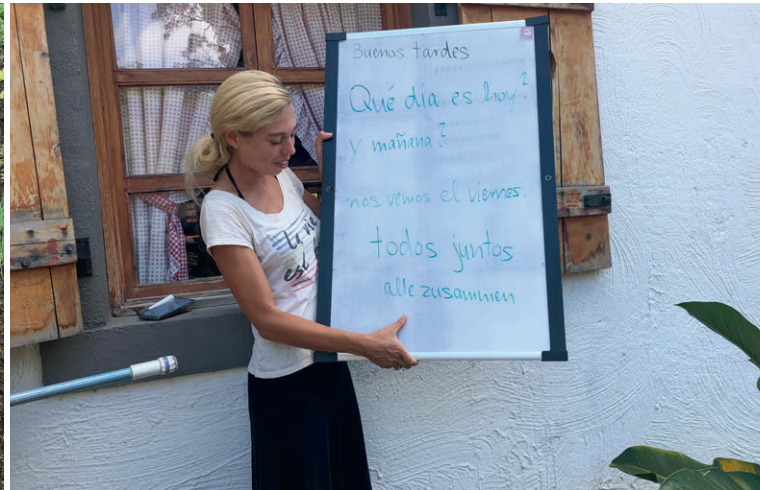 Buenas tardes
Qué día es hoy?
y mañana?
nos vemos el viernes.
todos juntos
alle zusammen